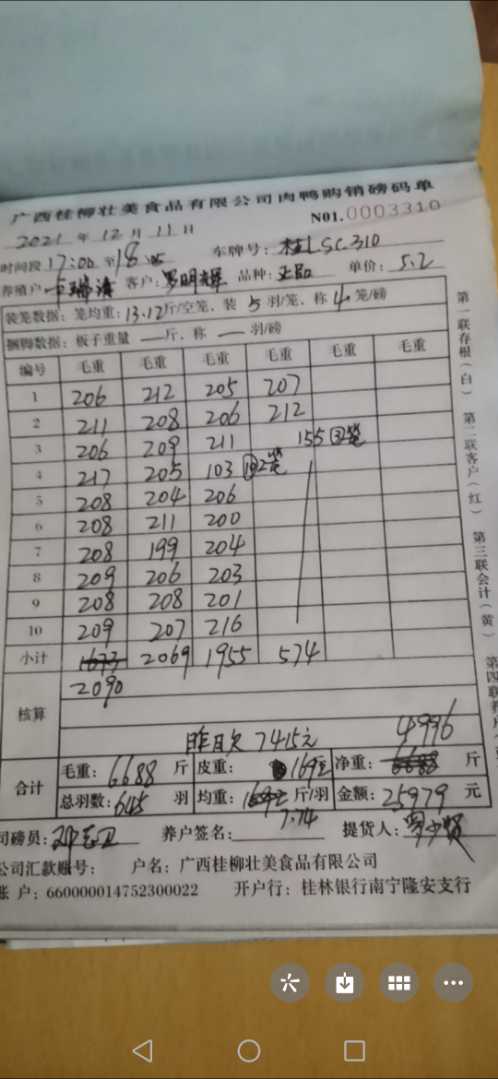 广西桂柳壮美食品有限公司肉鸭购销磅码单
2021 年 12 月 11 日 N01.0003310
时间段 17:00 至 18 车牌号: 桂LSC310
养殖户 客户: 罗明辉 品种: 正品 单价: 5.2
装笼数据: 笼均重: 13.12 斤/空笼、装 5 羽/笼、称 4 笼/磅
捆脚数据: 板子重量 — 斤, 称 — 羽/磅
编号 毛重 毛重 毛重 毛重 毛重 毛重
1 206 212 205 207
2 211 208 206 212
3 206 209 211 155 ③笼
4 217 205 103 2笼
5 208 204 206
6 208 211 200
7 208 199 204
8 209 206 203
9 208 208 201
10 209 207 216
小计 1673 2069 1955 574
2090
核算
昨日欠 7415元 4996
合计 毛重: 6688 斤 皮重: 1692 净重: 6688 斤
总羽数: 645 羽 均重: 斤/羽 金额: 25979 元
7.74
司磅员: 养户签名: 提货人:
公司汇款账号: 户名: 广西桂柳壮美食品有限公司
账 户: 660000014752300022 开户行: 桂林银行南宁隆安支行
第一联存根(白) 第二联客户(红) 第三联会计(黄) 第四联养